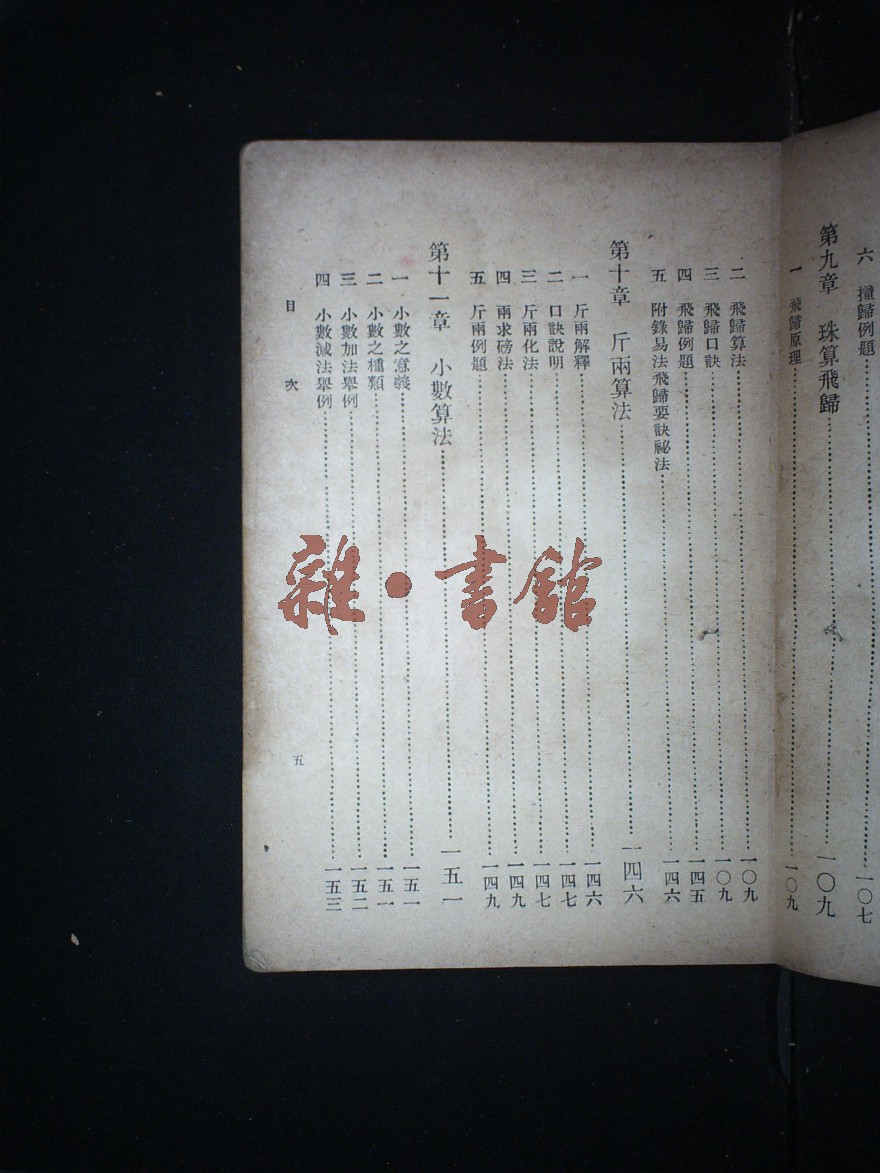 六　撞歸例題……一〇七
第九章　珠算飛歸……一〇九
一　飛歸原理……一〇九
二　飛歸算法……一〇九
三　飛歸口訣……一〇九
四　飛歸例題……一四五
五　附錄易法飛歸要訣祕法……一四六
第十章　斤兩算法……一四六
一　斤兩解釋……一四六
二　口訣說明……一四七
三　斤兩化法……一四七
四　兩求磅法……一四九
五　斤兩例題……一四九
第十一章　小數算法……一五一
一　小數之意義……一五一
二　小數之種類……一五一
三　小數加法舉例……一五二
四　小數減法舉例……一五三
目次
五
雜·書館